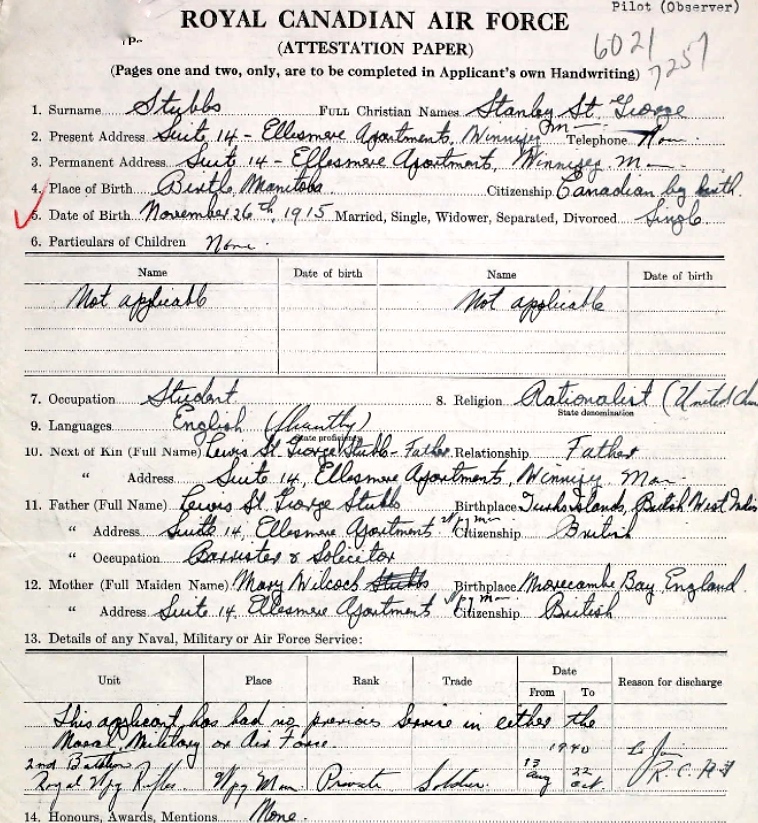 Pilot (Observer)
ROYAL CANADIAN AIR FORCE
(ATTESTATION PAPER)
6021
7257
(Pages one and two, only, are to be completed in Applicant's own Handwriting)
1. Surname Stubbs FULL Christian Names Stanley St. George
2. Present Address Suite 14 - Ellesmere Apartments, Winnipeg Man Telephone None
3. Permanent Address Suite 14 - Ellesmere Apartments, Winnipeg Man
4. Place of Birth Birtle, Manitoba Citizenship Canadian by birth.
5. Date of Birth November 26th, 1915 Married, Single, Widower, Separated, Divorced Single
6. Particulars of Children None.
Name Date of birth Name Date of birth
Not applicable Not applicable
7. Occupation Student 8. Religion Rationalist (United
State denomination
9. Languages English (fluently)
State proficiency
10. Next of Kin (Full Name) Lewis St. George Stubbs - Father Relationship Father
" Address Suite 14, Ellesmere Apartments, Winnipeg Man
11. Father (Full Name) Lewis St. George Stubbs Birthplace Turks Islands, British West Indies
" Address Suite 14, Ellesmere Apartments Wpg Man Citizenship British
" Occupation Barrister & Solicitor
12. Mother (Full Maiden Name) Mary Wilcock Stubbs Birthplace Morecambe Bay England.
" Address Suite 14, Ellesmere Apartments Wpg Man Citizenship British
13. Details of any Naval, Military or Air Force Service:
Unit Place Rank Trade Date Reason for discharge
From To
This applicant has had no previous service in either the
Naval, Military or Air Force.
1940
2nd Battalion 13 22 To Join
Royal Wpg Rifles. Wpg Man. Private Soldier. Aug Oct R.C.A.F
14. Honours, Awards, Mentions None.